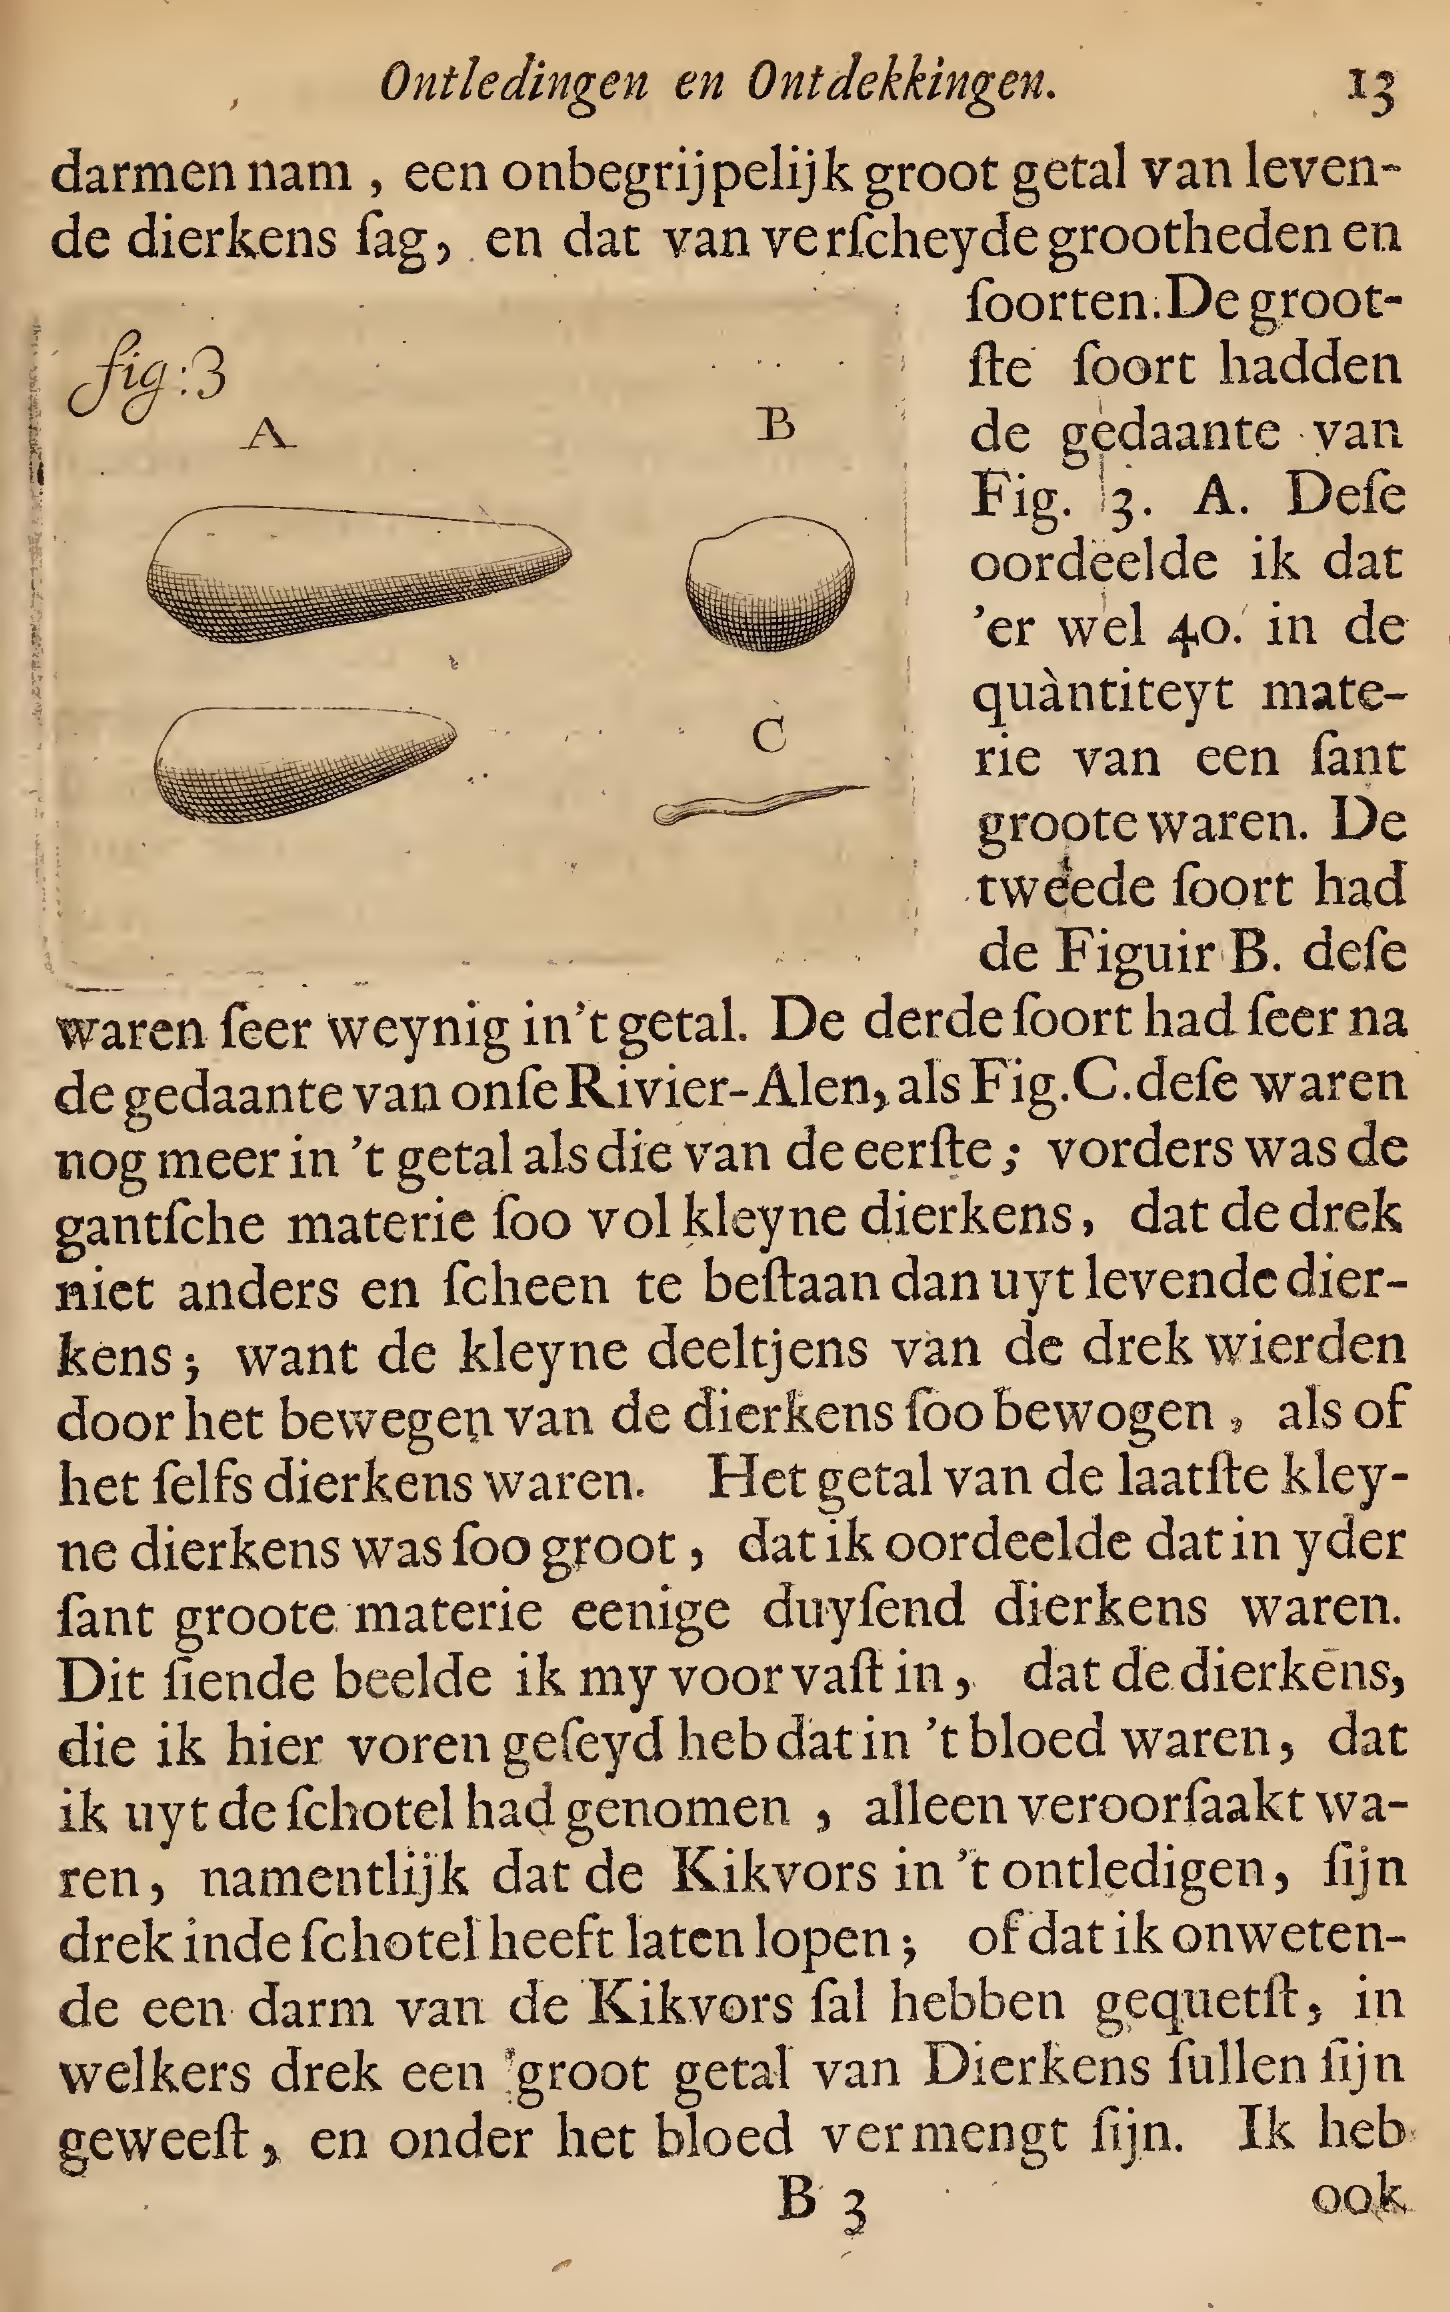 Ontledingen en Ontdekkingen. 13
darmen nam, een onbegrijpelijk groot getal van leven-
de dierkens ſag, en dat van verſcheyde grootheden en
fig: 3
A
B
C
ſoorten. De groot-
ſte ſoort hadden
de gedaante van
Fig. 3. A. Deſe
oordeelde ik dat
'er wel 40. in de
quàntiteyt mate-
rie van een ſant
groote waren. De
tweede ſoort had
de Figuir B. deſe
waren ſeer weynig in 't getal. De derde ſoort had ſeer na
de gedaante van onſe Rivier-Alen, als Fig. C. deſe waren
nog meer in 't getal als die van de eerſte; vorders was de
gantſche materie ſoo vol kleyne dierkens, dat de drek
niet anders en ſcheen te beſtaan dan uyt levende dier-
kens; want de kleyne deeltjens van de drek wierden
door het bewegen van de dierkens ſoo bewogen, als of
het ſelfs dierkens waren. Het getal van de laatſte kley-
ne dierkens was ſoo groot, dat ik oordeelde dat in yder
ſant groote materie eenige duyſend dierkens waren.
Dit ſiende beelde ik my voor vaſt in, dat de dierkens,
die ik hier voren geſeyd heb dat in 't bloed waren, dat
ik uyt de ſchotel had genomen, alleen veroorſaakt wa-
ren, namentlijk dat de Kikvors in 't ontledigen, ſijn
drek in de ſchotel heeft laten lopen; of dat ik onweten-
de een darm van de Kikvors ſal hebben gequetſt, in
welkers drek een groot getal van Dierkens ſullen ſijn
geweeſt, en onder het bloed vermengt ſijn. Ik heb
B 3 ook